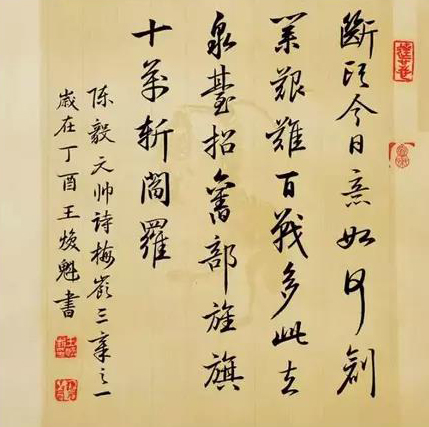 斷头今日意如何創
業艱難百戰多此去
泉臺招舊部旌旗
十萬斬閻羅
陈毅元帅詩梅嶺三章之一
歲在丁酉王焕魁書